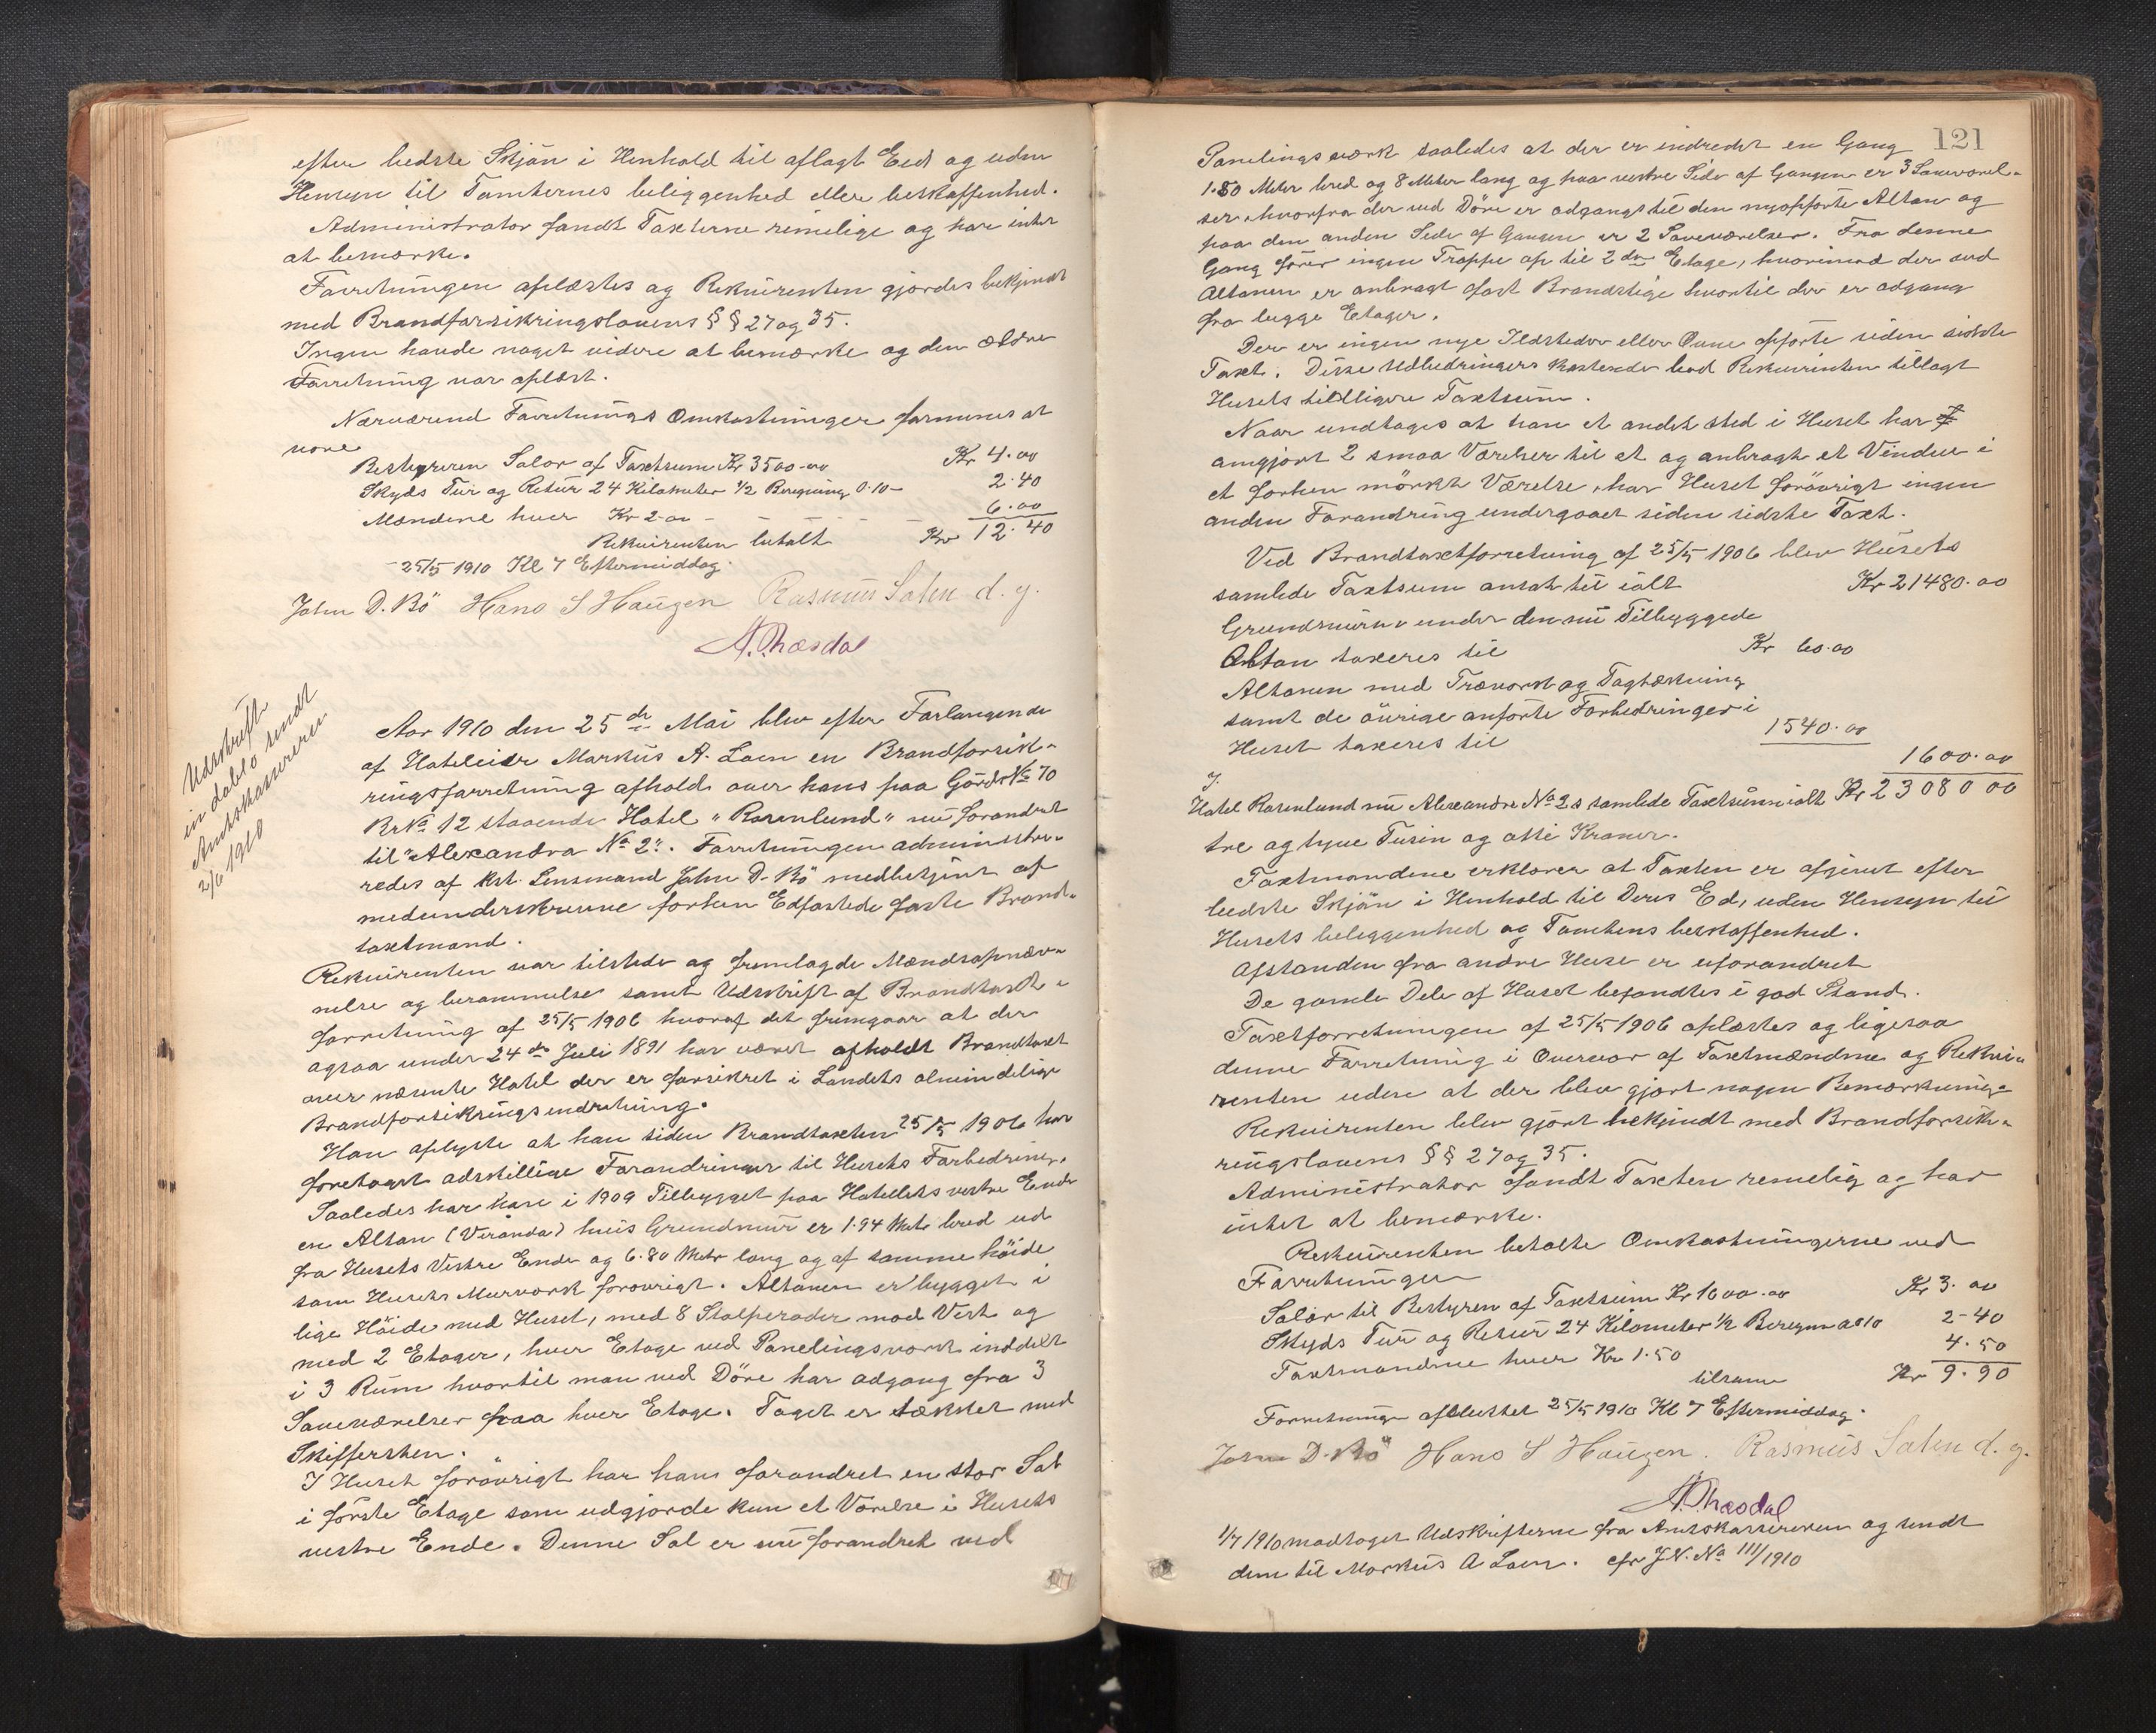 efter bedste Skjön i Henhold til aflagt Eed og uden
Hensyn til Tomternes beliggenhed eller beskaffenhed.
Administrator fandt Taxterne rimelige og har intet
at bemærke.
Forretningen oplæstes og Rekvirenten gjordes bekjendt
med Brandforsikringslovens § § 27 og 35.
Ingen havde noget videre at bemærke og den ældre
Forretning var oplæst.
Nærværend Forretnings Omkostninger formenes at
være
Bestyreren Salær af Taxtsum Kr 3500-00 Kr 4.00
Skyds Tur og Retur 24 Kilometer 1/2 Beregning 0.10- 2.40
Mændene hver Kr 2-00 - - - - - 6.00
Rekvirenten betalt Kr 12.40
- 25/5 1910 Kl 7 Eftermiddag.
John D. Bö Hans S Haugen Rasmus Sæten d. y.
A. Præsdal
Udskrift
in dablo sendt
Amtskassereren
2/6 1910
Aar 1910 den 25de Mai blev efter Forlangende
af Hoteleier Markus A. Loen en Brandforsik-
ringsforretning afholdt over hans paa Gårds No 70
Br No 12 staaende Hotel "Rosenlund" nu forandret
til "Alexandra No 2". Forretningen administre-
redes af Kst. Lensmand John D. Bö medbetjent af
medunderskrevne forhen Edfæstede faste Brand-
taxtmænd.
Rekvirenten var tilstede og fremlagde Mændsopnæv-
nelse og berammelse samt Udskrift af Brandtaxt-
forretning af 25/5 1906 hvoraf det fremgaar at der
ogsaa under 24de Juli 1891 har været afholdt Brandtaxt
over nævnte Hotel der er forsikret i Landets almindelige
Brandforsikringsindretning.
Han oplyste at han siden Brandtaxten 25/5 1906 har
foretaget adskillige Forandringer til Husets Forbedring.
Saaledes har han i 1909 Tilbygget paa Hotellets vestre Ende
en Altan (Veranda) hvis Grundmur er 1.94 Meter bred ud
fra Husets Vestre Ende og 6.80 Meter lang og af samme höide
som Husets Murværk forövrigt. Altanen er bygget i
lige Höide med Huset, med 8 Stolperader mod Vest og
med 2 Etager, hver Etage ved Panelingsværk inddelt
i 3 Rum hvortil man ved Döre har adgang fra 3
Soveværelser paa hver Etage. Taget er tækket med
Skiffersten.
I Huset forövrigt har han forandret en stor Sal
i förste Etage som udgjorde kun et Værelse i Husets
vestre Ende. Denne Sal er nu forandret ved
121
Panelingsværk saaledes at der er indredet en Gang
1.50 Meter bred og 8 Meter lang og paa vestre Side af Gangen er 3 Soveværel-
ser hvorfra der ved Döre er adgangt til den nyopförte Altan og
paa den anden Side af Gangen er 2 Soveværelser. Fra denne
Gang förer ingen Trappe op til 2den Etage, hvorimod der ved
Altanen er anbragt fast Brandstige hvortil der er adgang
fra begge Etager.
Der er ingen nye Ildsteder eller Ovne opförte siden sidste
Taxt. Disse Udbedringers Kostende bad Rekvirenten tillagt
Husets tildligere Taxtsum.
Naar undtages at han et andet sted i Huset har
omgjort 2 smaa Værelser til et og anbragt et Vindue i
et forhen mörkt Værelse, har Huset forövrigt ingen
anden Forandring undergaaet siden sidste Taxt.
Ved Brandtaxtforretning af 25/5 1906 blev Husets
samlede Taxtsum ansat til ialt Kr 21480.00
Grundmuren under den nu Tilbyggede
Altan taxeres til Kr 60.00
Altanen med Træværk og Tagtækning
samt de övrige anförte Forbedringer i
Huset taxeres til 1540.00
1600.00
Hotel Rosenlund nu Alexandra No 2s samlede Taxtsum ialt Kr 23080 00
tre og tyve Tusin og otti Kroner.
Taxtmændene erklærer at Taxten er afgivet efter
bedste Skjön i Henhold til Deres Ed, uden Hensyn til
Husets beliggenhed og Tomtens beskaffenhed.
Afstanden fra andre Huse er uforandret
De gamle Dele af Huset befandtes i god Stand.
Taxtforretningen af 25/5 1906 oplæstes og ligesaa
denne Forretning i Overvær af Taxtmændene og Rekvi-
renten uden at der blev gjort nogen Bemærkning.
Rekvirenten blev gjort bekjendt med Brandforsik-
ringslovens § § 27 og 35.
Administrator fandt Taxten remelig og har
intet at bemærke.
Rekvirenten betalte Omkostningerne ved
Forretningen
Salær til Bestyren af Taxtsum Kr 1600.00 Kr 3.00
Skyds Tur og Retur 24 Kilometer 1/2 Beregn a 010 2-40
Taxtmændene hver Kr 1.50 4.50
tilsam Kr 9.90
Forretning afsluttet 25/5 1910 Kl 7 Eftermiddag.
John D. Bö Hans S Haugen. Rasmus Sæten d. y.
A. Præsdal
1/7 1910 modtaget Udskrifterne fra Amtskassereren og sendt
dem til Markus A Loen. cfr J.N. No 111/1910